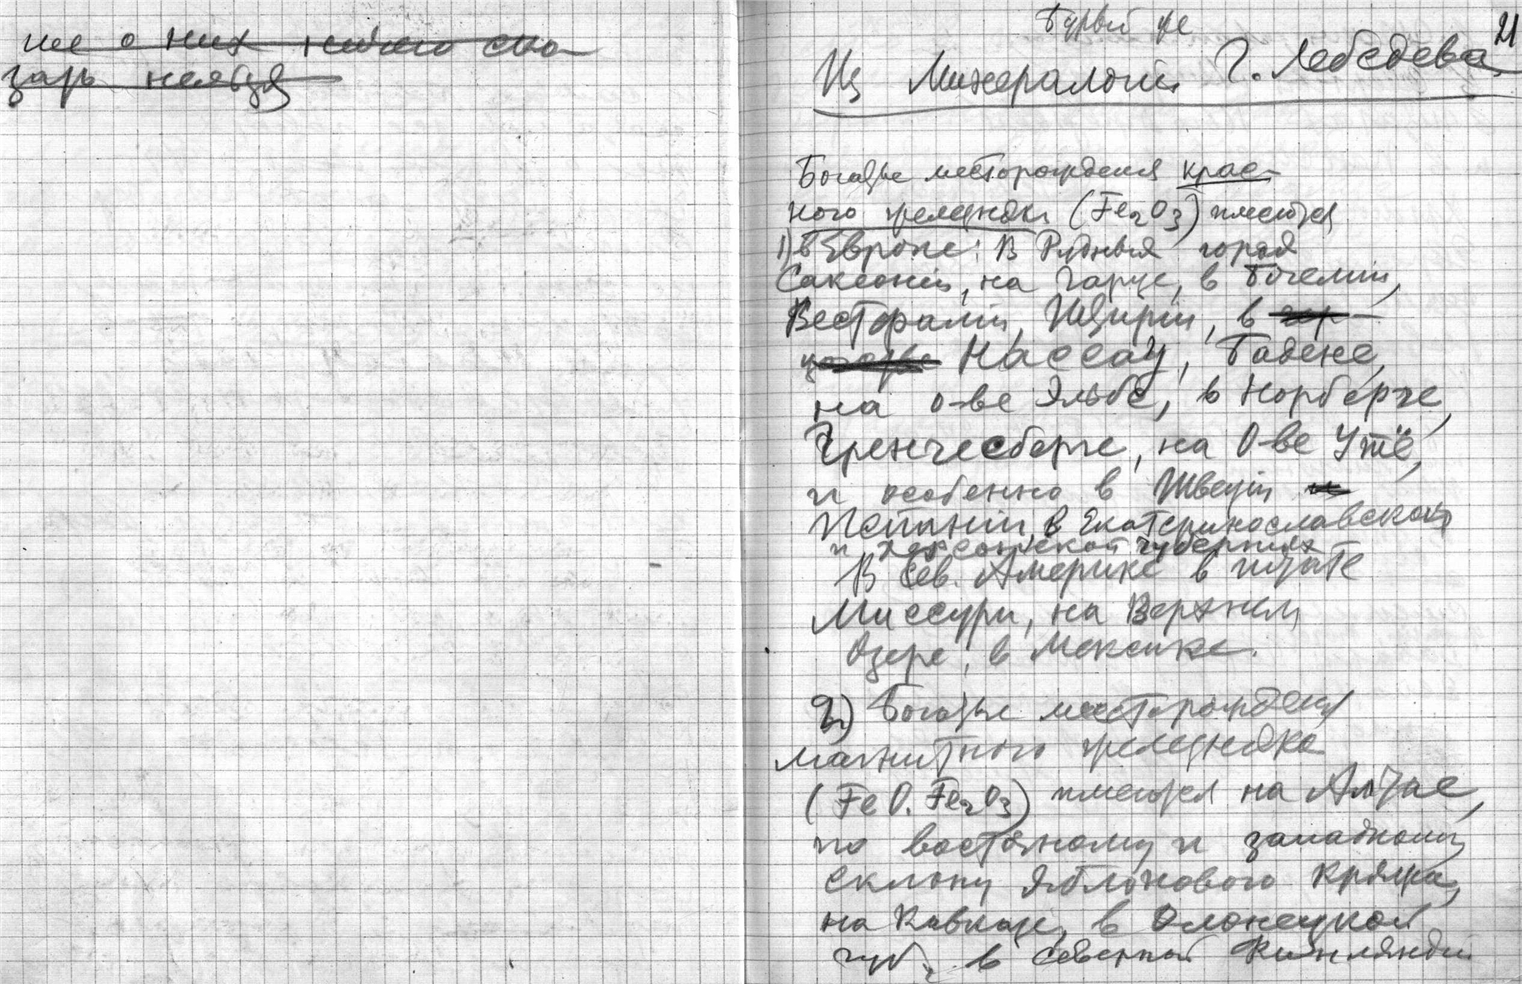 ше о них ничего ска-
зать нельзя
Бурый же
21
Из Минералогии Г. Лебедева
Богатые месторождения крас-
ного железняка (Fe2O3) имеются
1) в Европе: В Рудных горах
Саксонии, на Гарце, в Богемии,
Вестфалии, Штирии, в
Нассау, Бадене,
на о-ве Эльбе, в Норберге,
Гренгесберге, на О-ве Утё,
и особенно в Швеции
Испании, в Екатеринославской
и Херсонской губерниях
В Сев. Америке в штате
Миссури, на Верхнем
Озере, в Мексике.
2) Богатые месторождения
магнитного железняка
(FeO. Fe2O3) имеются на Алтае,
по восточному и западному
склону Яблонового Кряжа,
на Кавказе, в Олонецкой
губ., в Северной Финляндии